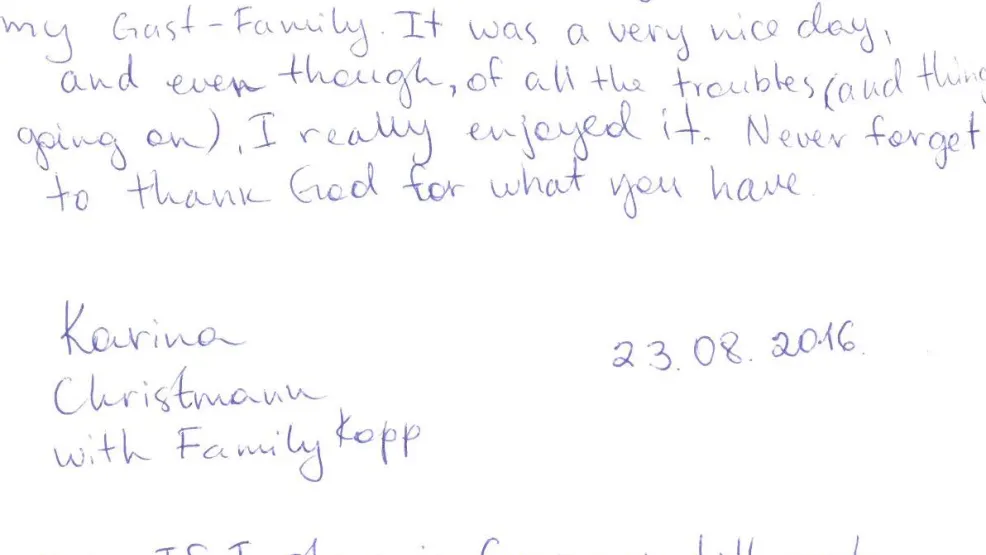 my Gast-Family. It was a very nice day,
and even though, of all the troubles (and thing
going on), I really enjoyed it. Never forget
to thank God for what you have.
Karina
23.08.2016.
Christmann
with Family Kopp